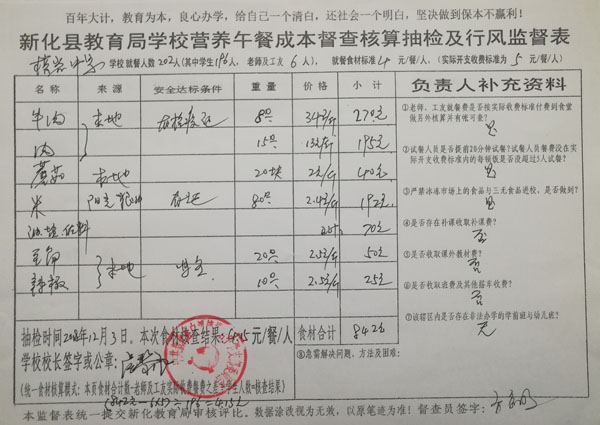 百年大计，教育为本，良心办学，给自己一个清白，还社会一个明白，坚决做到保本不赢利！
新化县教育局学校营养午餐成本督查核算抽检及行风监督表
学校就餐人数202人(其中学生196人，老师及工友6人)，就餐食材标准4元/餐/人，(实际开支收费标准为5元/餐/人)
名称 来源 安全达标条件 重量 价格 小计 负责人补充资料
牛肉 本地 8斤 34元/斤 270元
肉 15斤 13元/斤 195元
蘑菇 本地 20块 2元/斤 40元
米 80斤 2.4元/斤 192元
油盐佐料 70元
20斤 2.5元/斤 50元
辣椒 本地 安全 10斤 2.5元/斤 25元
①老师、工友就餐费是否按实际收费标准付费到食堂
做另外核算并有帐可查？
是
②试餐人员是否提前20分钟试餐?试餐人员餐费没在
实际开支收费标准内的每顿饭是否没超过5人试餐?
是
③严禁冰冻市场上的食品与三无食品进校，是否做到？
是
④是否存在补课收取补课费？
否
⑤是否收取课外教材费？
否
⑥是否收取班费及其他搭车收费？
否
⑦该辖区内是否存在非法办学的学前班与幼儿班？
无
⑧急需解决问题、方法及困难：
抽检时间2018年12月3日。本次食材核查结果：4.15元/餐/人 食材合计 842元
学校校长签字或公章：
(统一食材核算模式：本页食材合计数-老师及工友实际收费餐费之差÷学生人数=核查结果)
(842元-6×5)÷196=4.15元
本监督表统一提交新化教育局审核评比。数据涂改视为无效，以原笔迹为准！督查员签字：